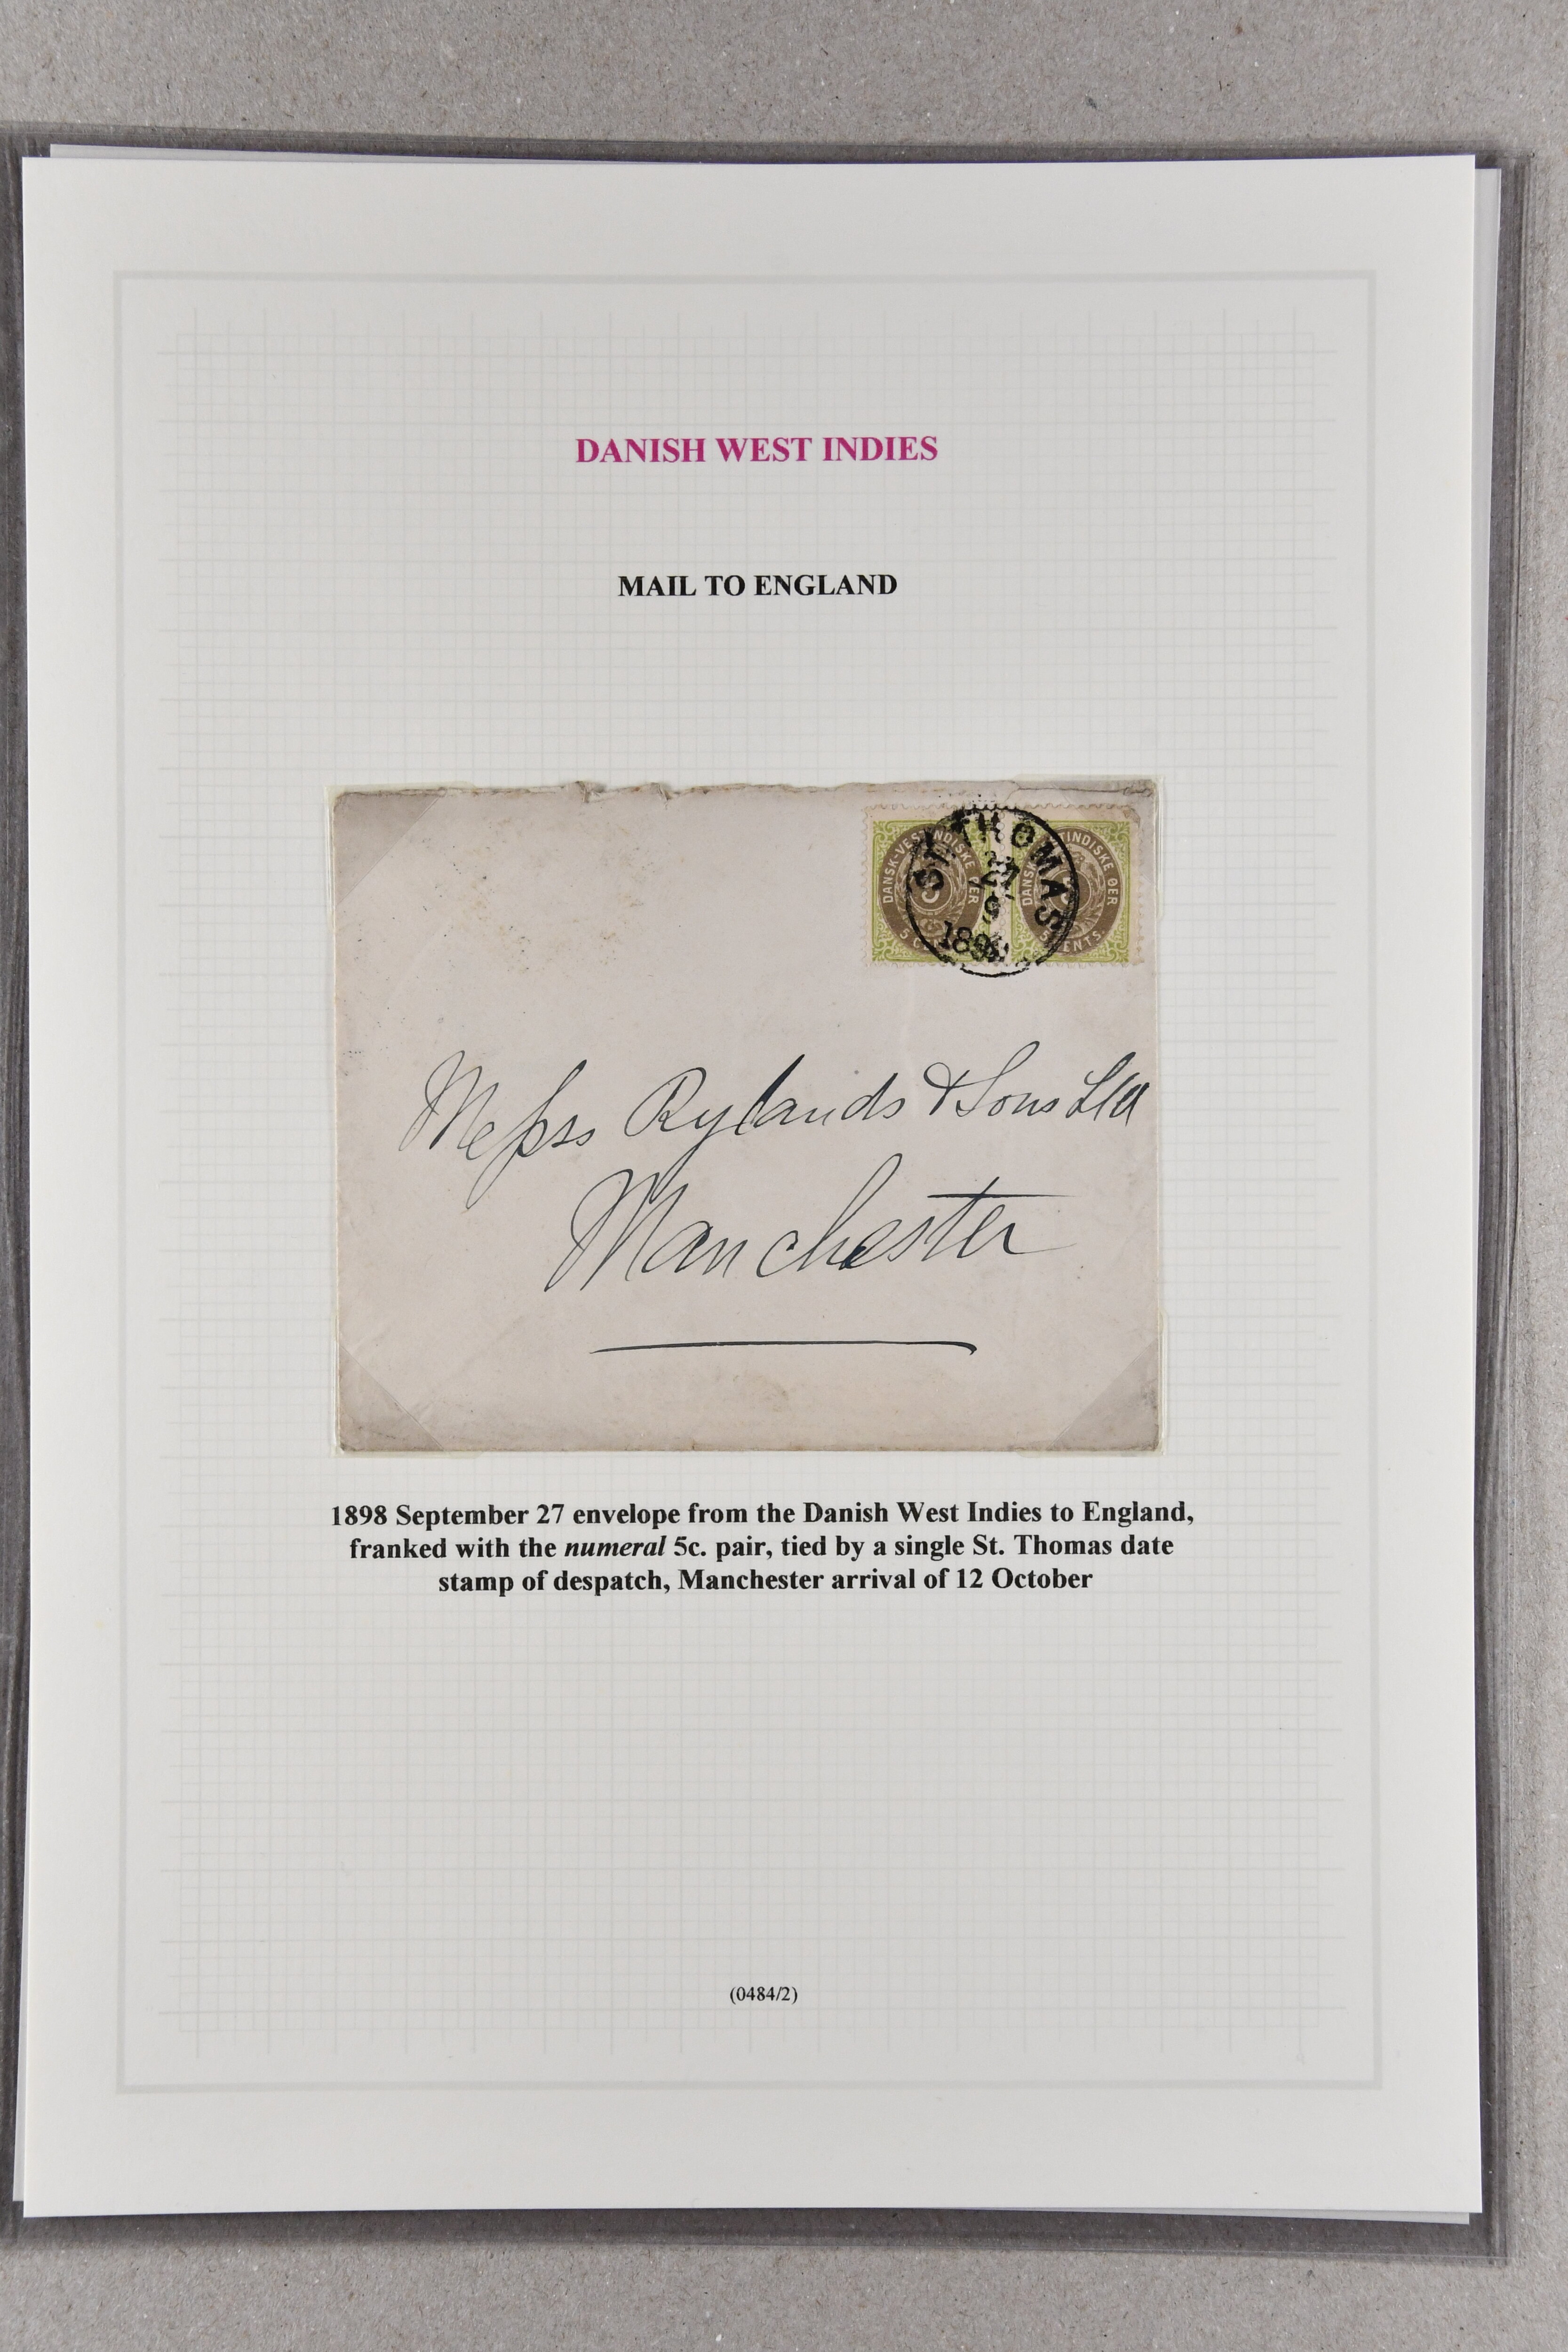 DANISH WEST INDIES
MAIL TO ENGLAND
ST. THOMAS
27
9
DANSK-VESTINDISKE ØER
5 C
TINDISKE ØER
CENTS.
Messrs Rylands & Sons Ltd
Manchester
1898 September 27 envelope from the Danish West Indies to England,
franked with the numeral 5c. pair, tied by a single St. Thomas date
stamp of despatch, Manchester arrival of 12 October
(0484/2)